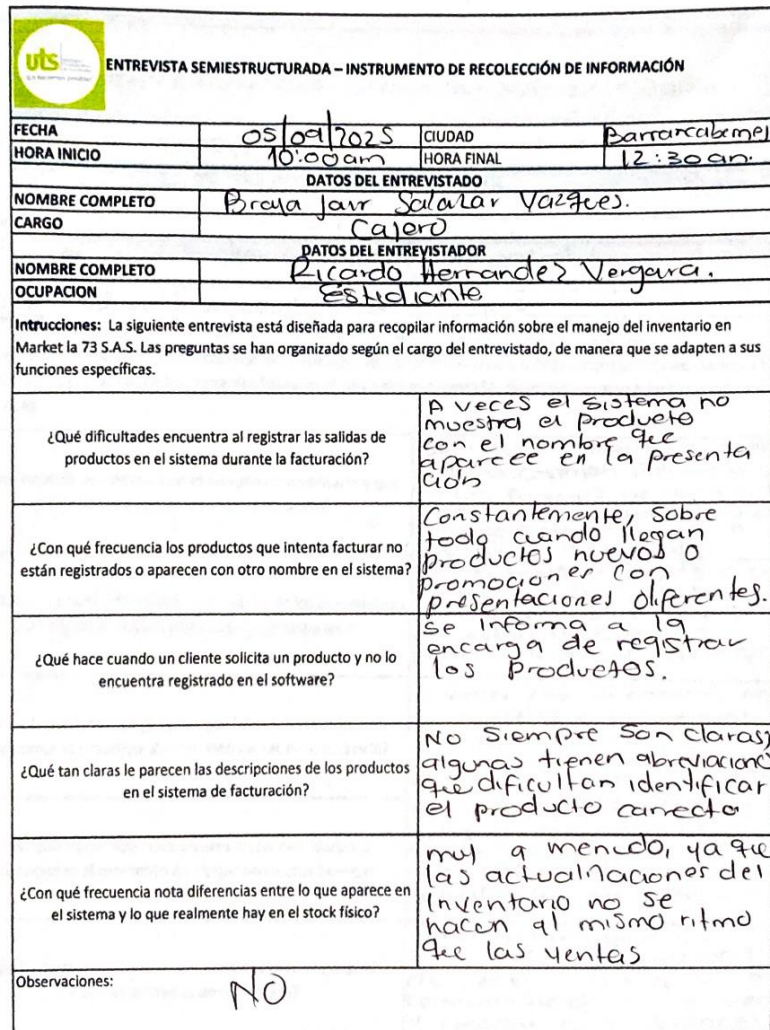 uts
ENTREVISTA SEMIESTRUCTURADA – INSTRUMENTO DE RECOLECCIÓN DE INFORMACIÓN
FECHA 05/09/2025 CIUDAD Barrancabermej
HORA INICIO 10:00am HORA FINAL 12:30 am.
DATOS DEL ENTREVISTADO
NOMBRE COMPLETO Salazar Vazques.
CARGO Cajero
DATOS DEL ENTREVISTADOR
NOMBRE COMPLETO Ricardo Hernandez Vergara.
OCUPACION Estudiante
Intrucciones: La siguiente entrevista está diseñada para recopilar información sobre el manejo del inventario en
Market la 73 S.A.S. Las preguntas se han organizado según el cargo del entrevistado, de manera que se adapten a sus
funciones específicas.
¿Qué dificultades encuentra al registrar las salidas de
productos en el sistema durante la facturación?
A veces el sistema no
muestra el producto
con el nombre que
aparece en la presenta
ción
¿Con qué frecuencia los productos que intenta facturar no
están registrados o aparecen con otro nombre en el sistema?
Constantemente, sobre
todo cuando llegan
productos nuevos o
promociones con
presentaciones diferentes.
¿Qué hace cuando un cliente solicita un producto y no lo
encuentra registrado en el software?
se informa a la
encarga de registrar
los productos.
¿Qué tan claras le parecen las descripciones de los productos
en el sistema de facturación?
No siempre son claras,
algunas tienen abreviacione
que dificultan identificar
el producto correcto
¿Con qué frecuencia nota diferencias entre lo que aparece en
el sistema y lo que realmente hay en el stock físico?
muy a menudo, ya que
las actualizaciones del
inventario no se
hacen al mismo ritmo
que las ventas
Observaciones: NO